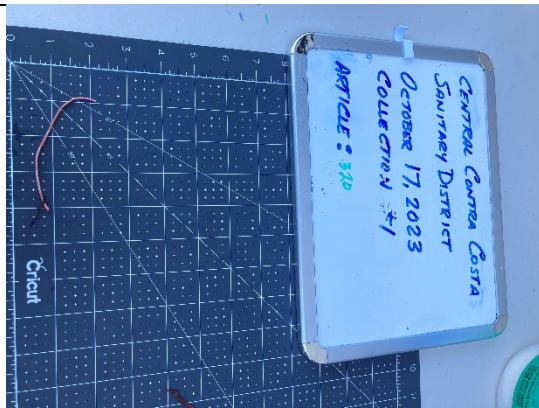 CENTRAL CONTRA COSTA
SANITARY DISTRICT
OCTOBER 17, 2023
COLLECTION #1
ARTICLE: 320
Cricut